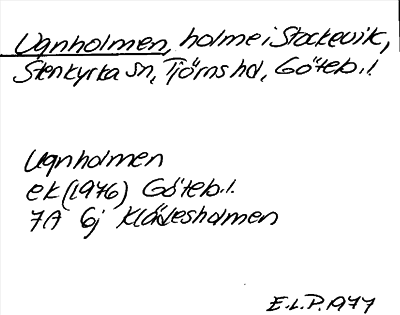 Ugnholmen, holme i Stockevik,
Stenkyrka sn, Tjörns hd, Göteb.l.
Ugnholmen
ek (1976) Göteb.l.
7A 6j Klädesholmen
E.L.P. 1977